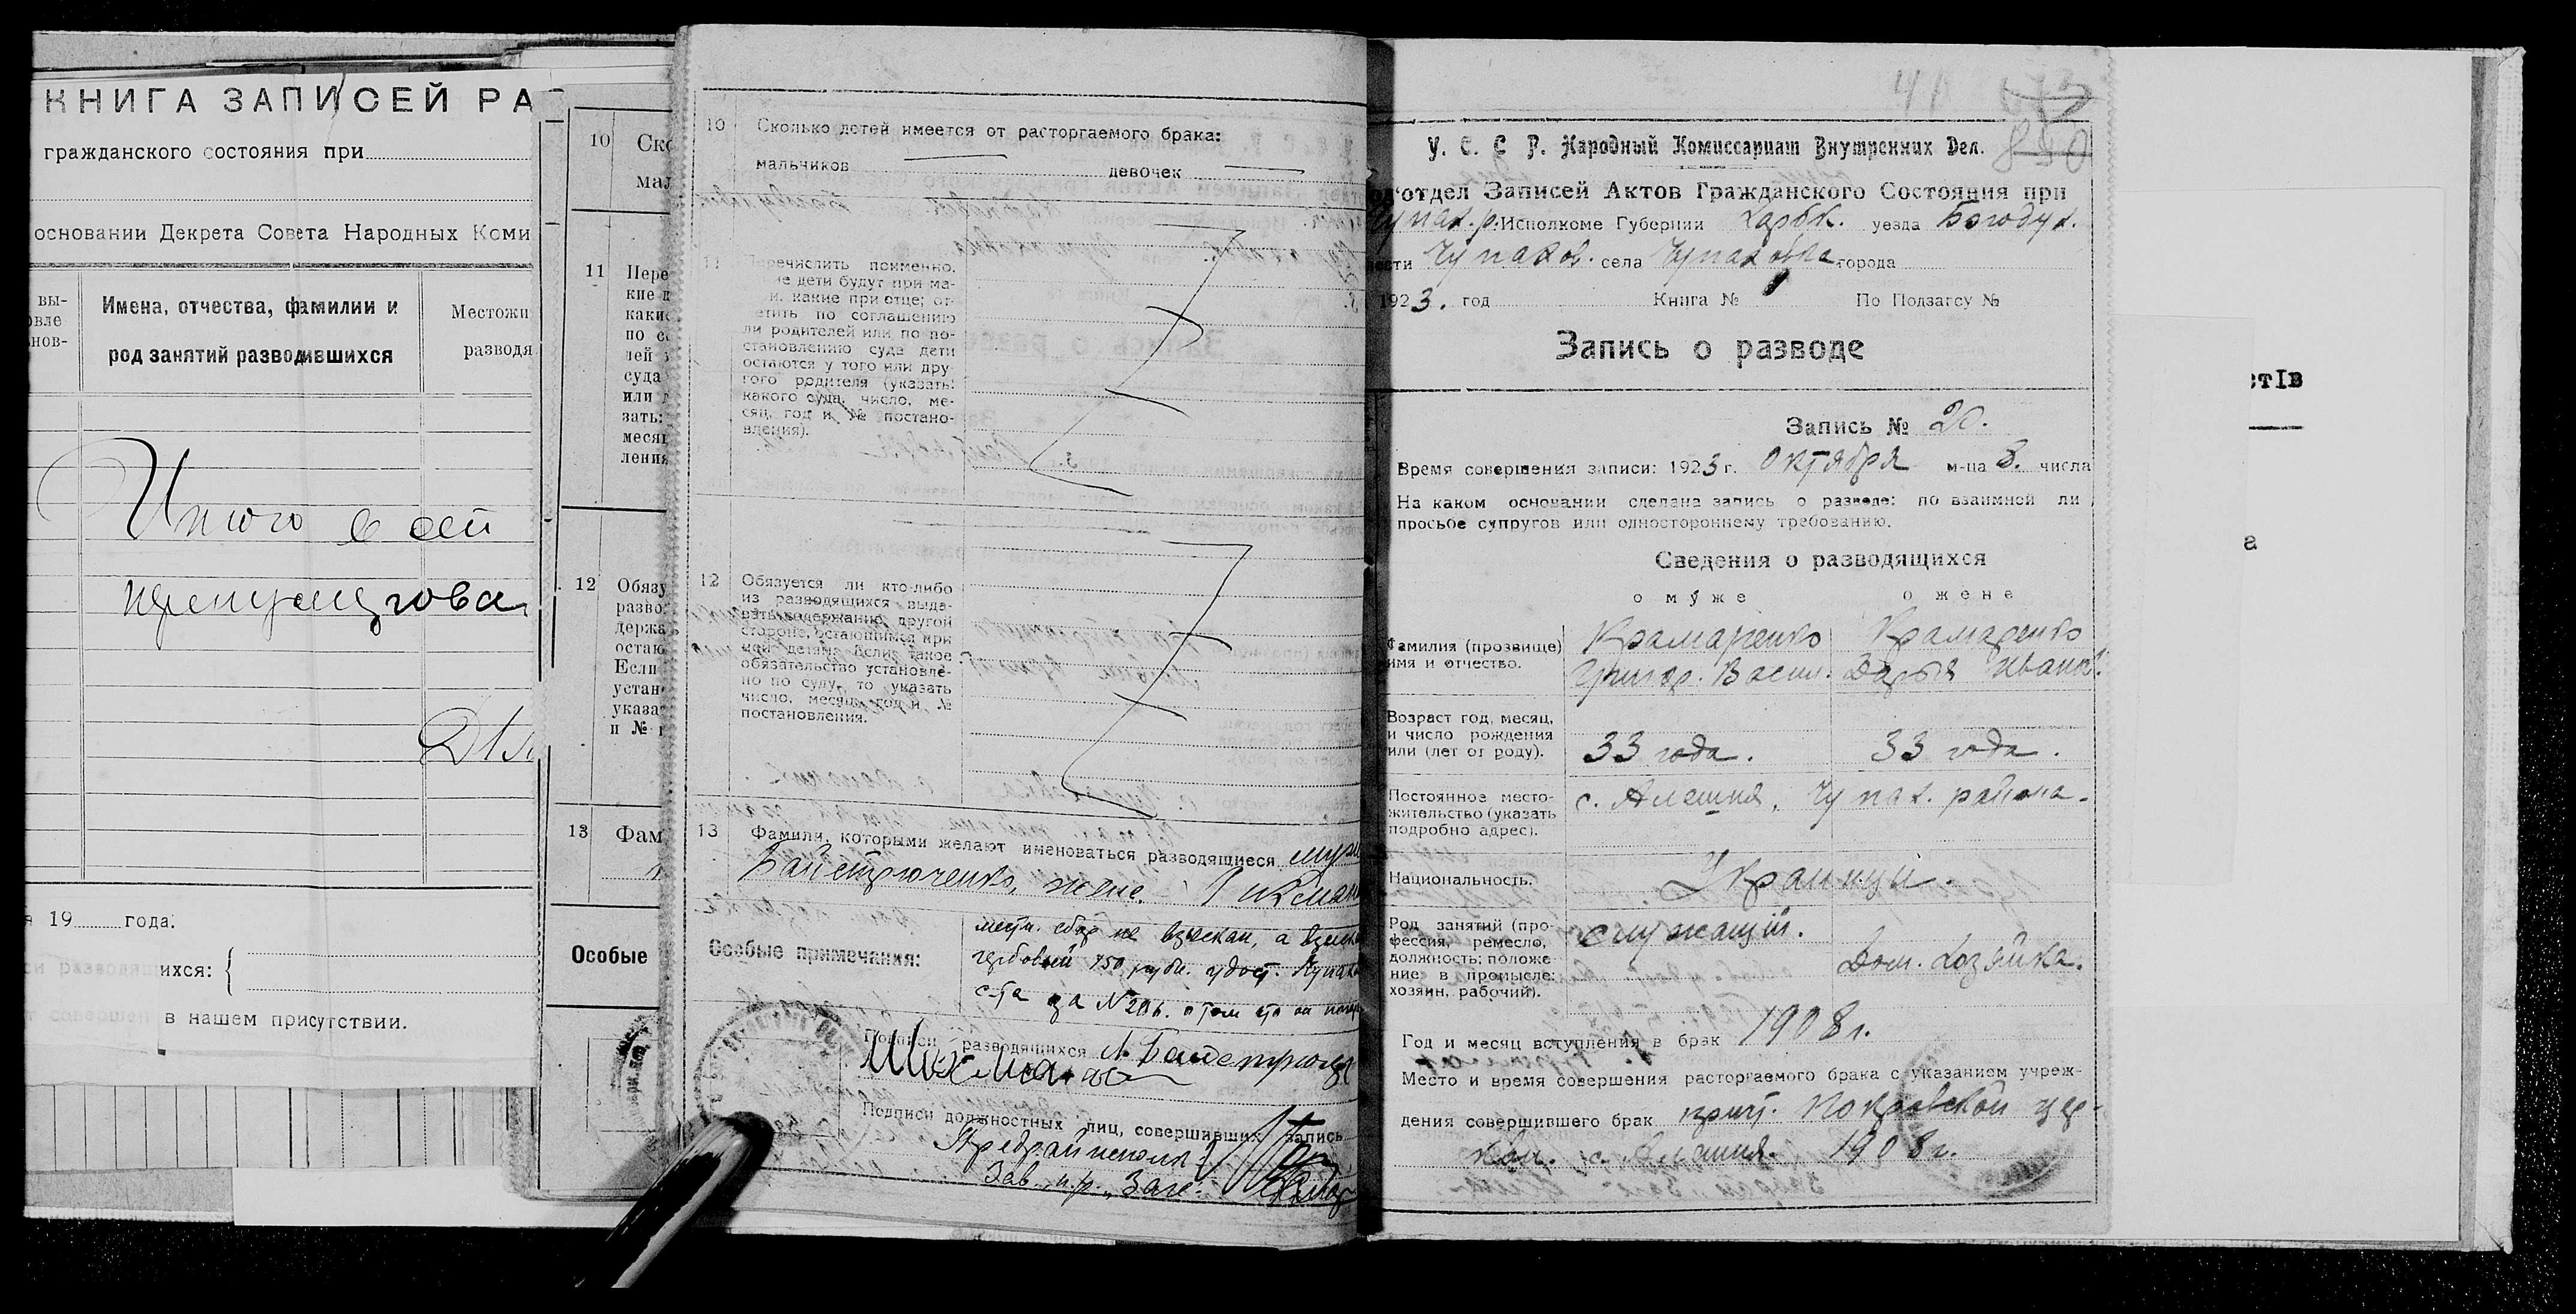 КНИГА ЗАПИСЕЙ РА
гражданского состояния при
основании Декрета Совета Народных Коми
вы-
Имена, отчества, фамилии и
Местожи
нов-
род занятий разводившихся
разводя
Итого в сей
пронумерова
19 года.
ихся:
в нашем присутствии.
10 Ско
мал
11 Пере
кие д
каки
по со
лей
суда
или
зать:
месяц
ления
12 Обязу
разво
держа
остаю
Если
устан
указа
и №
13 Фам
Особые
10 Сколько детей имеется от расторгаемого брака:
мальчиков — девочек —
11 Перечислить поименно,
е дети будут при ма-
и, какие при отце; от-
етить по соглашению
ли родителей или по по-
становлению суда дети
остаются у того или дру-
гого родителя (указать:
какого суда, число, ме-
сяц, год и № постано-
вления).
12 Обязуется ли кто-либо
из разводящихся выда-
вать содержание другой
стороне, остающимся при
ней детям. Если такое
обязательство установле-
но по суду, то указать
число, месяц, год и №
постановления.
13 Фамили, которыми желают именоваться разводящиеся
жене.
Особые примечания:
местн. сбор не взыскан, а взыска
гербовый 150 рубл. удост.
с-та за № 206. о том что он
Подписи разводящихся
Подписи должностных лиц, совершивших запись
Предрайисполк
Зав. п.р. „Загс"
41
850
У. С. С. Р. Народный Комиссариат Внутренних Дел.
отдел Записей Актов Гражданского Состояния при
Чупах. р. Исполкоме Губернии Харьк. уезда Богодух.
ости Чупахов. села Чупаховка города
1923. год Книга № По Подзагсу №
Запись о разводе
Запись № 20.
Время совершения записи: 1923 г. Октября м-ца 8. числа
На каком основании сделана запись о разводе: по взаимной ли
просьбе супругов или одностороннему требованию.
Сведения о разводящихся
о муже о жене
Фамилия (прозвище)
имя и отчество.
Крамаренко Крамаренко
Григор. Васил. Дарья Иванов.
Возраст год, месяц,
и число рождения
или (лет от роду).
33 года. 33 года.
Постоянное место-
жительство (указать
подробно адрес).
с. Алешня, Чупах. района.
Национальность.
Украинци.
Род занятий (про-
фессия, ремесло,
должность; положе
ние в промысле:
хозяин, рабочий).
служащий.
Дом. хозяйка.
Год и месяц вступления в брак 1908 г.
Место и время совершения расторгаемого брака с указанием учреж-
дения совершившего брак прит. Покровской цер-
кви. с. Алешня. 1908 г.
стІв
а